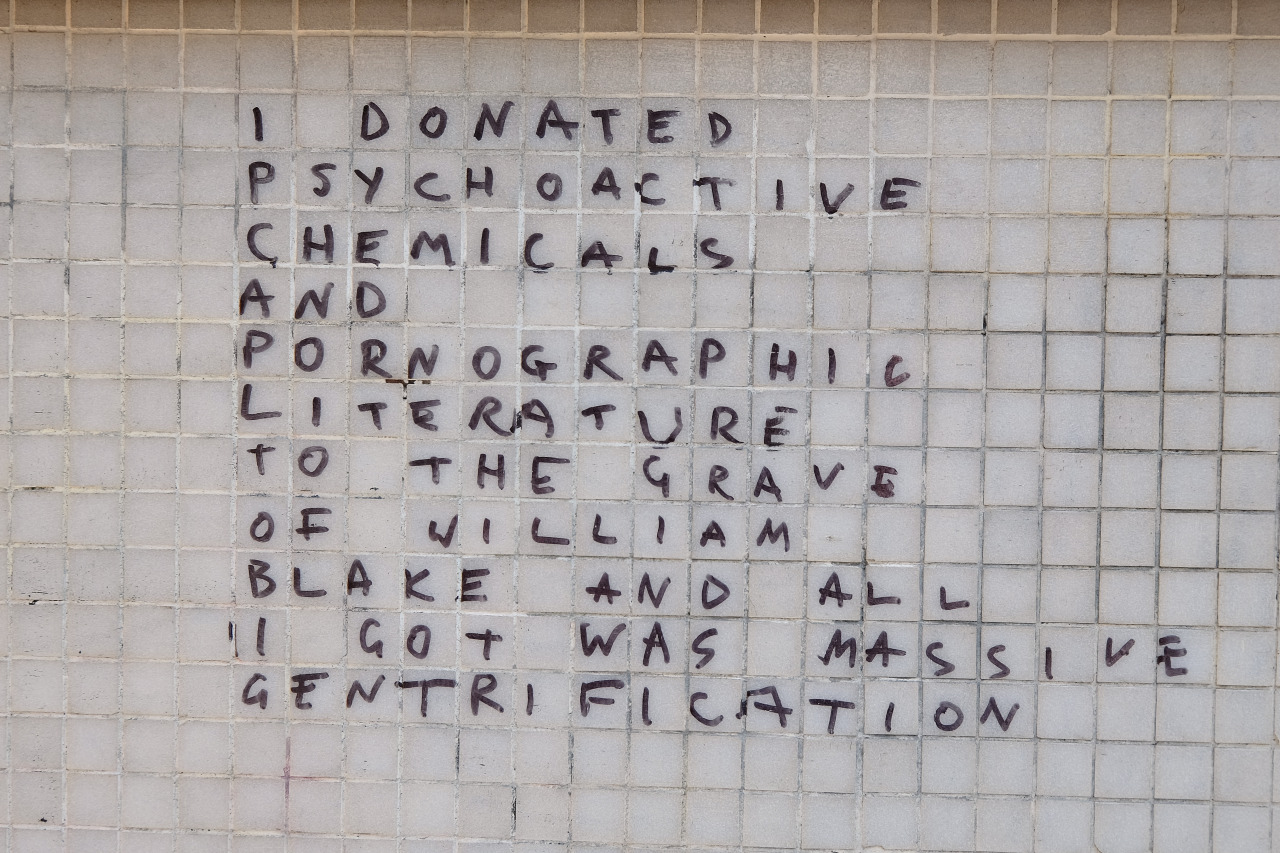 I DONATED
PSYCHOACTIVE
CHEMICALS
AND
PORNOGRAPHIC
LITERATURE
TO THE GRAVE
OF WILLIAM
BLAKE AND ALL
I GOT WAS MASSIVE
GENTRIFICATION